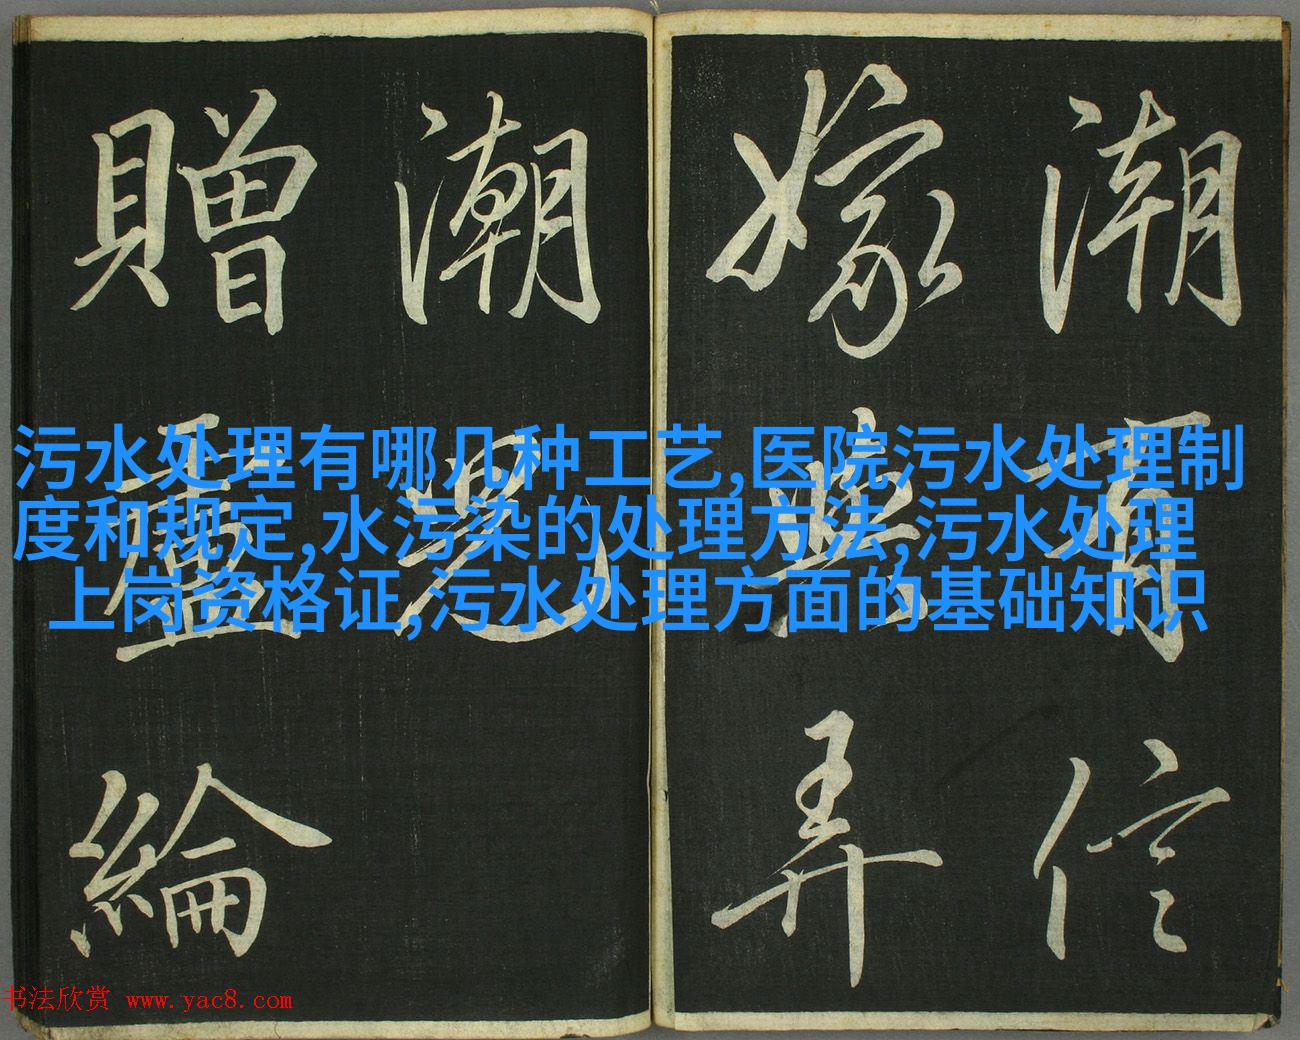 潮有信
嫁與弄
潮兒
贈盧綸
污水处理有哪几种工艺,医院污水处理制
度和规定,水污染的处理方法,污水处理
上岗资格证,污水处理方面的基础知识
书法欣赏 www.yac8.com